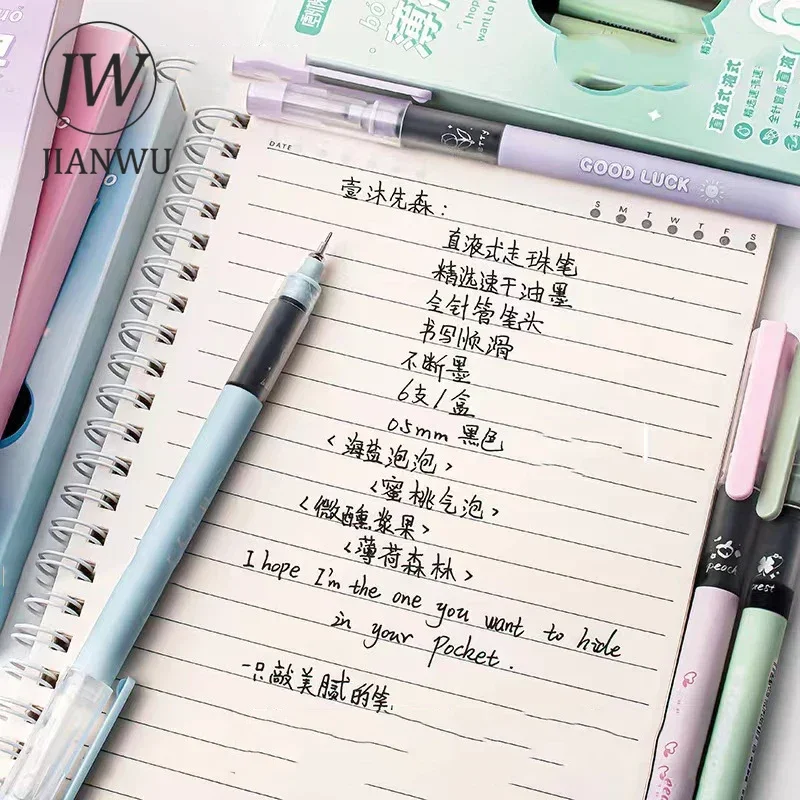 JW
JIANWU
DATE
GOOD LUCK
S M T W T F S
壹沐先森：
直液式走珠笔
精选速干油墨
全针管笔头
书写顺滑
不断墨
6支1盒
0.5mm 黑色
<海盐泡泡>
<蜜桃气泡>
<微醺浆果>
<薄荷森林>
I hope I'm the one you want to hide
in your Pocket.
一只敲美腻的笔
peach
直液式